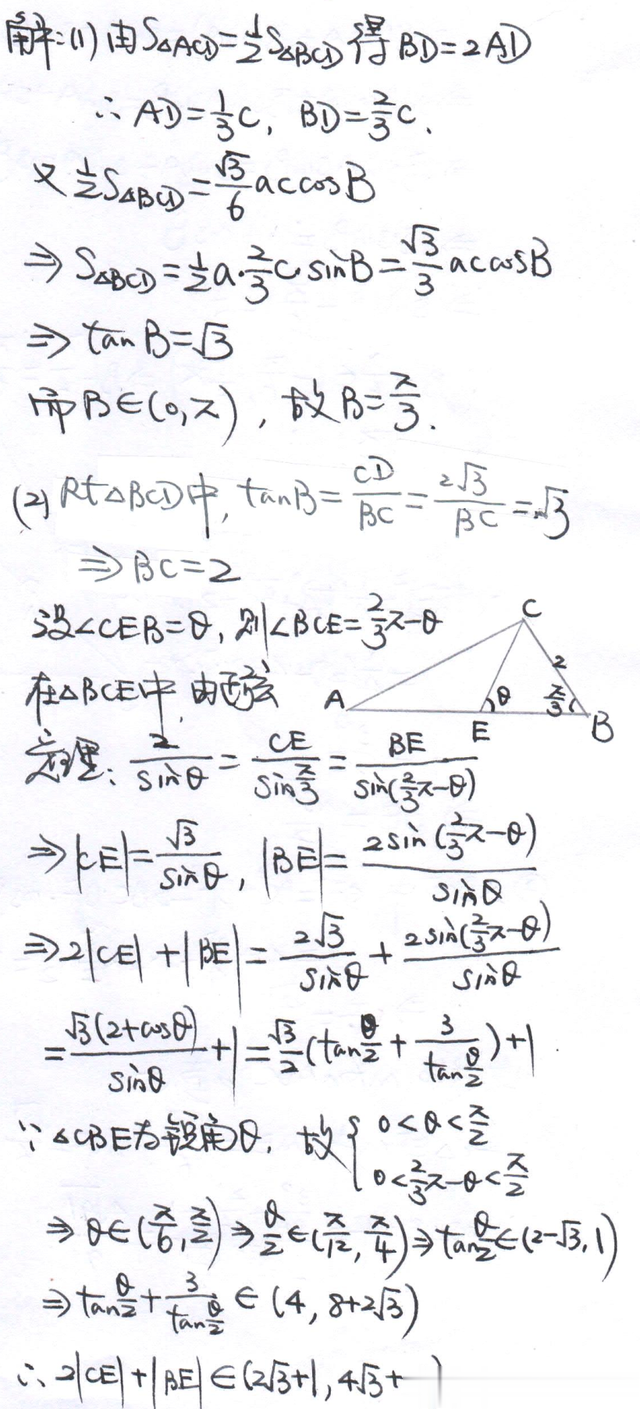 解:(1) 由S△ACD=½S△BCD 得 BD=2AD
∴ AD=⅓c, BD=⅔c.
又 ½S△BCD=√3/6 accosB
⇒ S△BCD=½a·⅔c·sinB=√3/3 accosB
⇒ tanB=√3
而B∈(0,π), 故B=π/3.
(2) Rt△BCD中, tanB=CD/BC=2√3/BC=√3
⇒ BC=2
设∠CEB=θ, 则∠BCE=⅔π-θ
在△BCE中,由正弦
定理: 2/sinθ=CE/sin(π/3)=BE/sin(⅔π-θ)
C
2
A
θ
π/3
E
B
⇒|CE|=√3/sinθ, |BE|=2sin(⅔π-θ)/sinθ
⇒2|CE|+|BE|=2√3/sinθ+2sin(⅔π-θ)/sinθ
=√3(2+cosθ)/sinθ+1=√3/2(tan θ/2+3/tan θ/2)+1.
∵△CBE为锐角θ, 故{0<θ<π/2
0<⅔π-θ<π/2
⇒θ∈(π/6,π/2)⇒θ/2∈(π/12,π/4)⇒tan θ/2∈(2-√3,1)
⇒tan θ/2+3/tan θ/2∈(4, 8+2√3)
∴2|CE|+|BE|∈(2√3+1, 4√3+ )